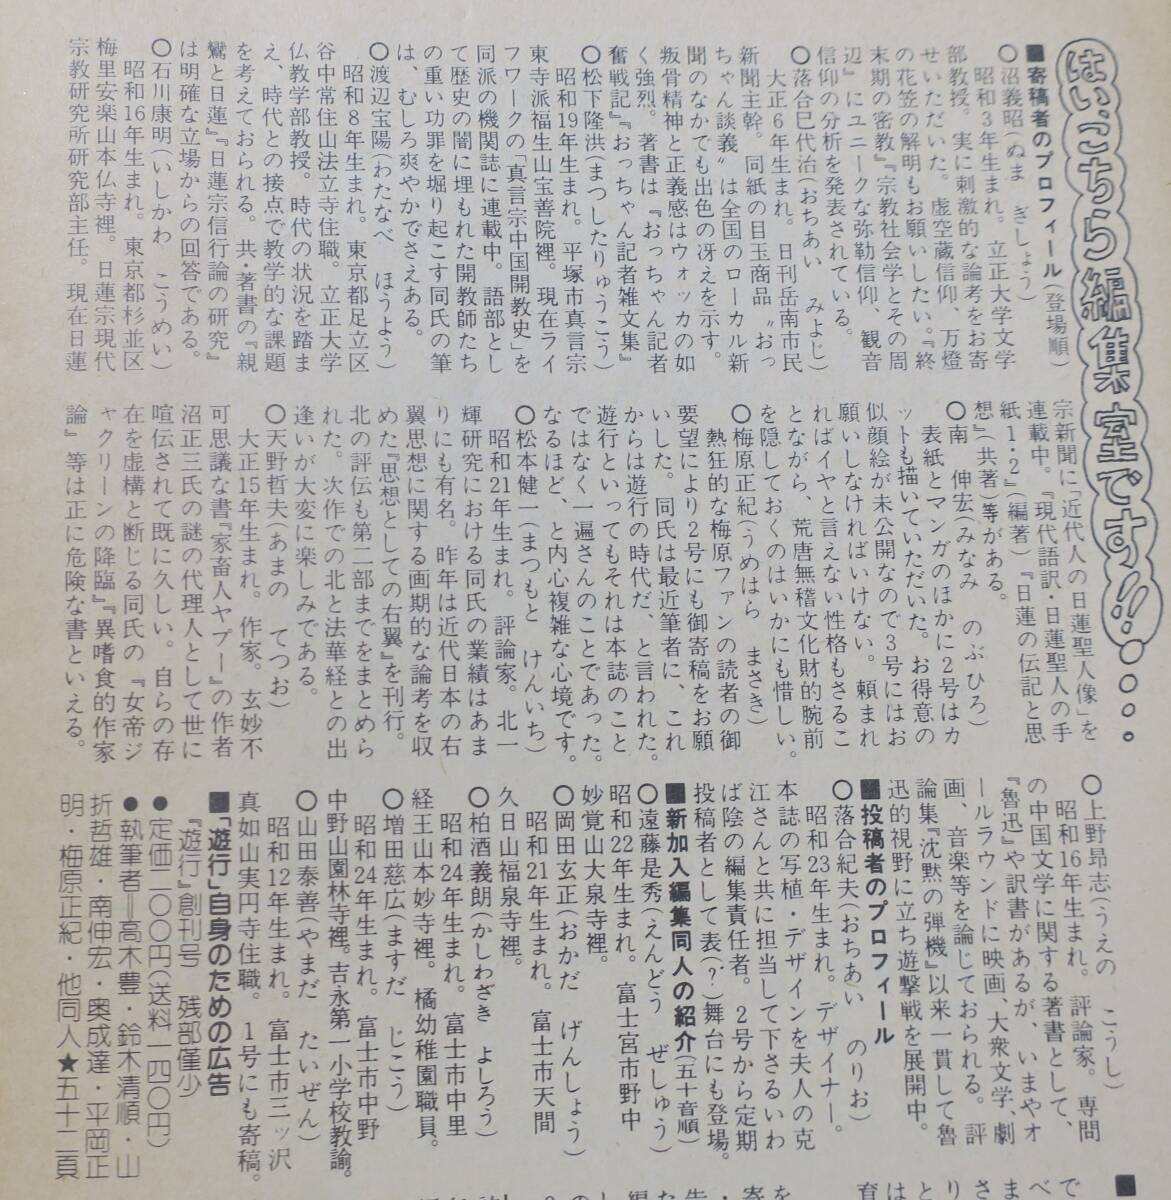 はいこちら編集室です!!
■寄稿者のプロフィール(登場順)
〇沼義昭(ぬま　ぎしょう)
昭和3年生まれ。立正大学文学
部教授。実に刺激的な論考をお寄
せいただいた。虚空蔵信仰、万燈
の花笠の解明もお願いしたい。『終
末期の密教』『宗教社会学とその周
辺』にユニークな弥勒信仰、観音
信仰の分析を発表されている。
〇落合巳代治(おちあい　みよじ)
大正6年生まれ。日刊岳南市民
新聞主幹。同紙の目玉商品〝おっ
ちゃん談義〟は全国のローカル新
聞のなかでも出色の冴えを示す。
叛骨精神と正義感はウォッカの如
く強烈。著書は『おっちゃん記者
奮戦記』『おっちゃん記者雑文集』
〇松下隆洪(まつしたりゅうこう)
昭和19年生まれ。平塚市真言宗
東寺派福生山宝善院裡。現在ライ
フワークの「真言宗中国開教史」を
同派の機関誌に連載中。語部とし
て歴史の闇に埋もれた開教師たち
の重い功罪を堀り起こす同氏の筆
は、むしろ爽やかでさえある。
〇渡辺宝陽(わたなべ　ほうよう)
昭和8年生まれ。東京都足立区
谷中常住山法立寺住職。立正大学
仏教学部教授。時代の状況を踏ま
え、時代との接点で教学的な課題
を考えておられる。共・著書の『親
鸞と日蓮』『日蓮宗信行論の研究』
は明確な立場からの回答である。
〇石川康明(いしかわ　こうめい)
昭和16年生まれ。東京都杉並区
梅里安楽山本仏寺裡。日蓮宗現代
宗教研究所研究部主任。現在日蓮
宗新聞に「近代人の日蓮聖人像」を
連載中。『現代語訳・日蓮聖人の手
紙1・2』(編著)『日蓮の伝記と思
想』(共著)等がある。
〇南　伸宏(みなみ　のぶひろ)
表紙とマンガのほかに2号はカ
ットも描いていただいた。お得意の
似顔絵が未公開なので3号にはお
願いしなければいけない。頼まれ
ればイヤと言えない性格もさるこ
とながら、荒唐無稽文化財的腕前
を隠しておくのはいかにも惜しい。
〇梅原正紀(うめはら　まさき)
熱狂的な梅原ファンの読者の御
要望により2号にも御寄稿をお願
いした。同氏は最近筆者に、これ
からは遊行の時代だ、と言われた。
遊行といってもそれは本誌のこと
ではなく一遍さんのことであった。
なるほど、と内心複雑な心境です。
〇松本健一(まつもと　けんいち)
昭和21年生まれ。評論家。北一
輝研究における同氏の業績はあま
りにも有名。昨年は近代日本の右
翼思想に関する画期的な論考を収
めた『思想としての右翼』を刊行。
北の評伝も第二部までをまとめら
れた。次作での北と法華経との出
逢いが大変に楽しみである。
〇天野哲夫(あまの　てつお)
大正15年生まれ。作家。玄妙不
可思議な書『家畜人ヤプー』の作者
沼正三氏の謎の代理人として世に
喧伝されて既に久しい。自らの存
在を虚構と断じる同氏の『女帝ジ
ャクリーンの降臨』『異嗜食的作家
論』等は正に危険な書といえる。
〇上野昂志(うえの　こうし)
昭和16年生まれ。評論家。専門
の中国文学に関する著書として、
『魯迅』や訳書があるが、いまやオ
ールラウンドに映画、大衆文学、劇
画、音楽等を論じておられる。評
論集『沈黙の弾機』以来一貫して魯
迅的視野に立ち遊撃戦を展開中。
■投稿者のプロフィール
〇落合紀夫(おちあい　のりお)
昭和23年生まれ。デザイナー。
本誌の写植・デザインを夫人の克
江さんと共に担当して下さるいわ
ば陰の編集責任者。2号から定期
投稿者として表(?)舞台にも登場。
■新加入編集同人の紹介(五十音順)
〇遠藤是秀(えんどう　ぜしゅう)
昭和22年生まれ。富士宮市野中
妙覚山大泉寺裡。
〇岡田玄正(おかだ　げんしょう)
昭和21年生まれ。富士市天間
久日山福泉寺裡。
〇柏酒義朗(かしわざき　よしろう)
昭和24年生まれ。富士市中里
経王山本妙寺裡。橘幼稚園職員。
〇増田慈広(ますだ　じこう)
昭和24年生まれ。富士市中野
中野山園林寺裡。吉永第一小学校教諭。
〇山田泰善(やまだ　たいぜん)
昭和12年生まれ。富士市三ッ沢
真如山実円寺住職。1号にも寄稿。
■「遊行」自身のための広告
『遊行』創刊号　残部僅少
●定価二〇〇円(送料一四〇円)
●執筆者＝高木豊・鈴木清順・山
折哲雄・南伸宏・奥成達・平岡正
明・梅原正紀・他同人★五十二頁